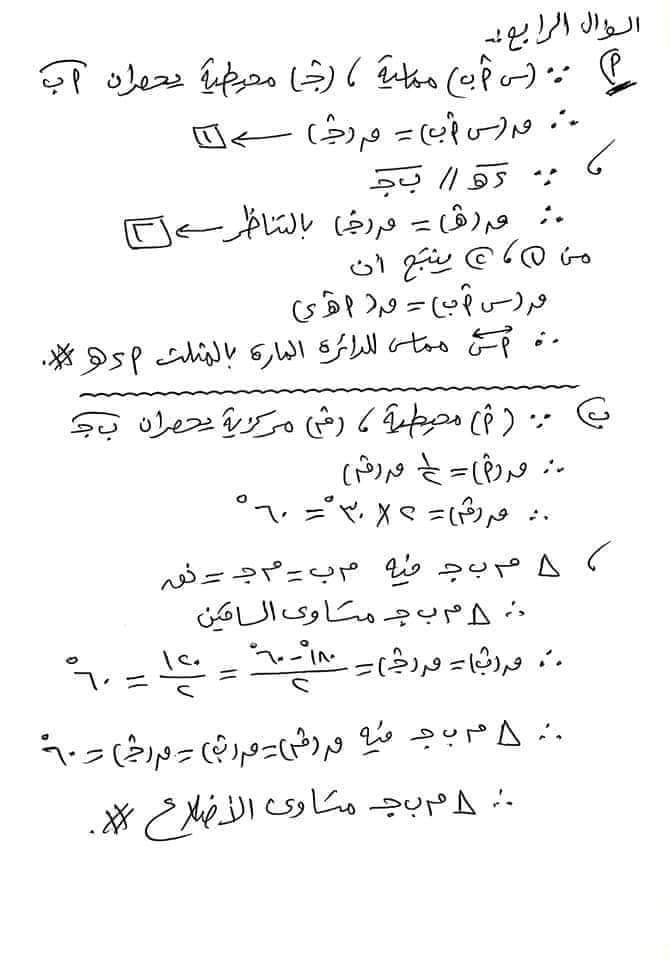 السؤال الرابع :-
(أ) ∵ (س أ̂ ب) مماسية ، (جـ̂) محيطية يحصران أب
∴ ق(س أ̂ ب) = ق(جـ̂) ← [١]
، ∵ د هـ // ب جـ
∴ ق(هـ̂) = ق(جـ̂) بالتناظر ← [٢]
من ① ، ② ينتج أن
ق(س أ̂ ب) = ق(أ هـ̂ د)
∴ أس مماس للدائرة المارة بالمثلث أ د هـ #.
(ب) ∵ (أ̂) محيطية ، (م̂) مركزية يحصران ب جـ
∴ ق(أ̂) = ١/٢ ق(م̂)
∴ ق(م̂) = ٢ × ٣٠° = ٦٠°
، △ م ب جـ فيه م ب = م جـ = نق
∴ △ م ب جـ متساوى الساقين
∴ ق(ب̂) = ق(جـ̂) = (١٨٠° - ٦٠°)/٢ = ١٢٠/٢ = ٦٠°
∴ △ م ب جـ فيه ق(م̂) = ق(ب̂) = ق(جـ̂) = ٦٠°
∴ △ م ب جـ متساوى الأضلاع #.